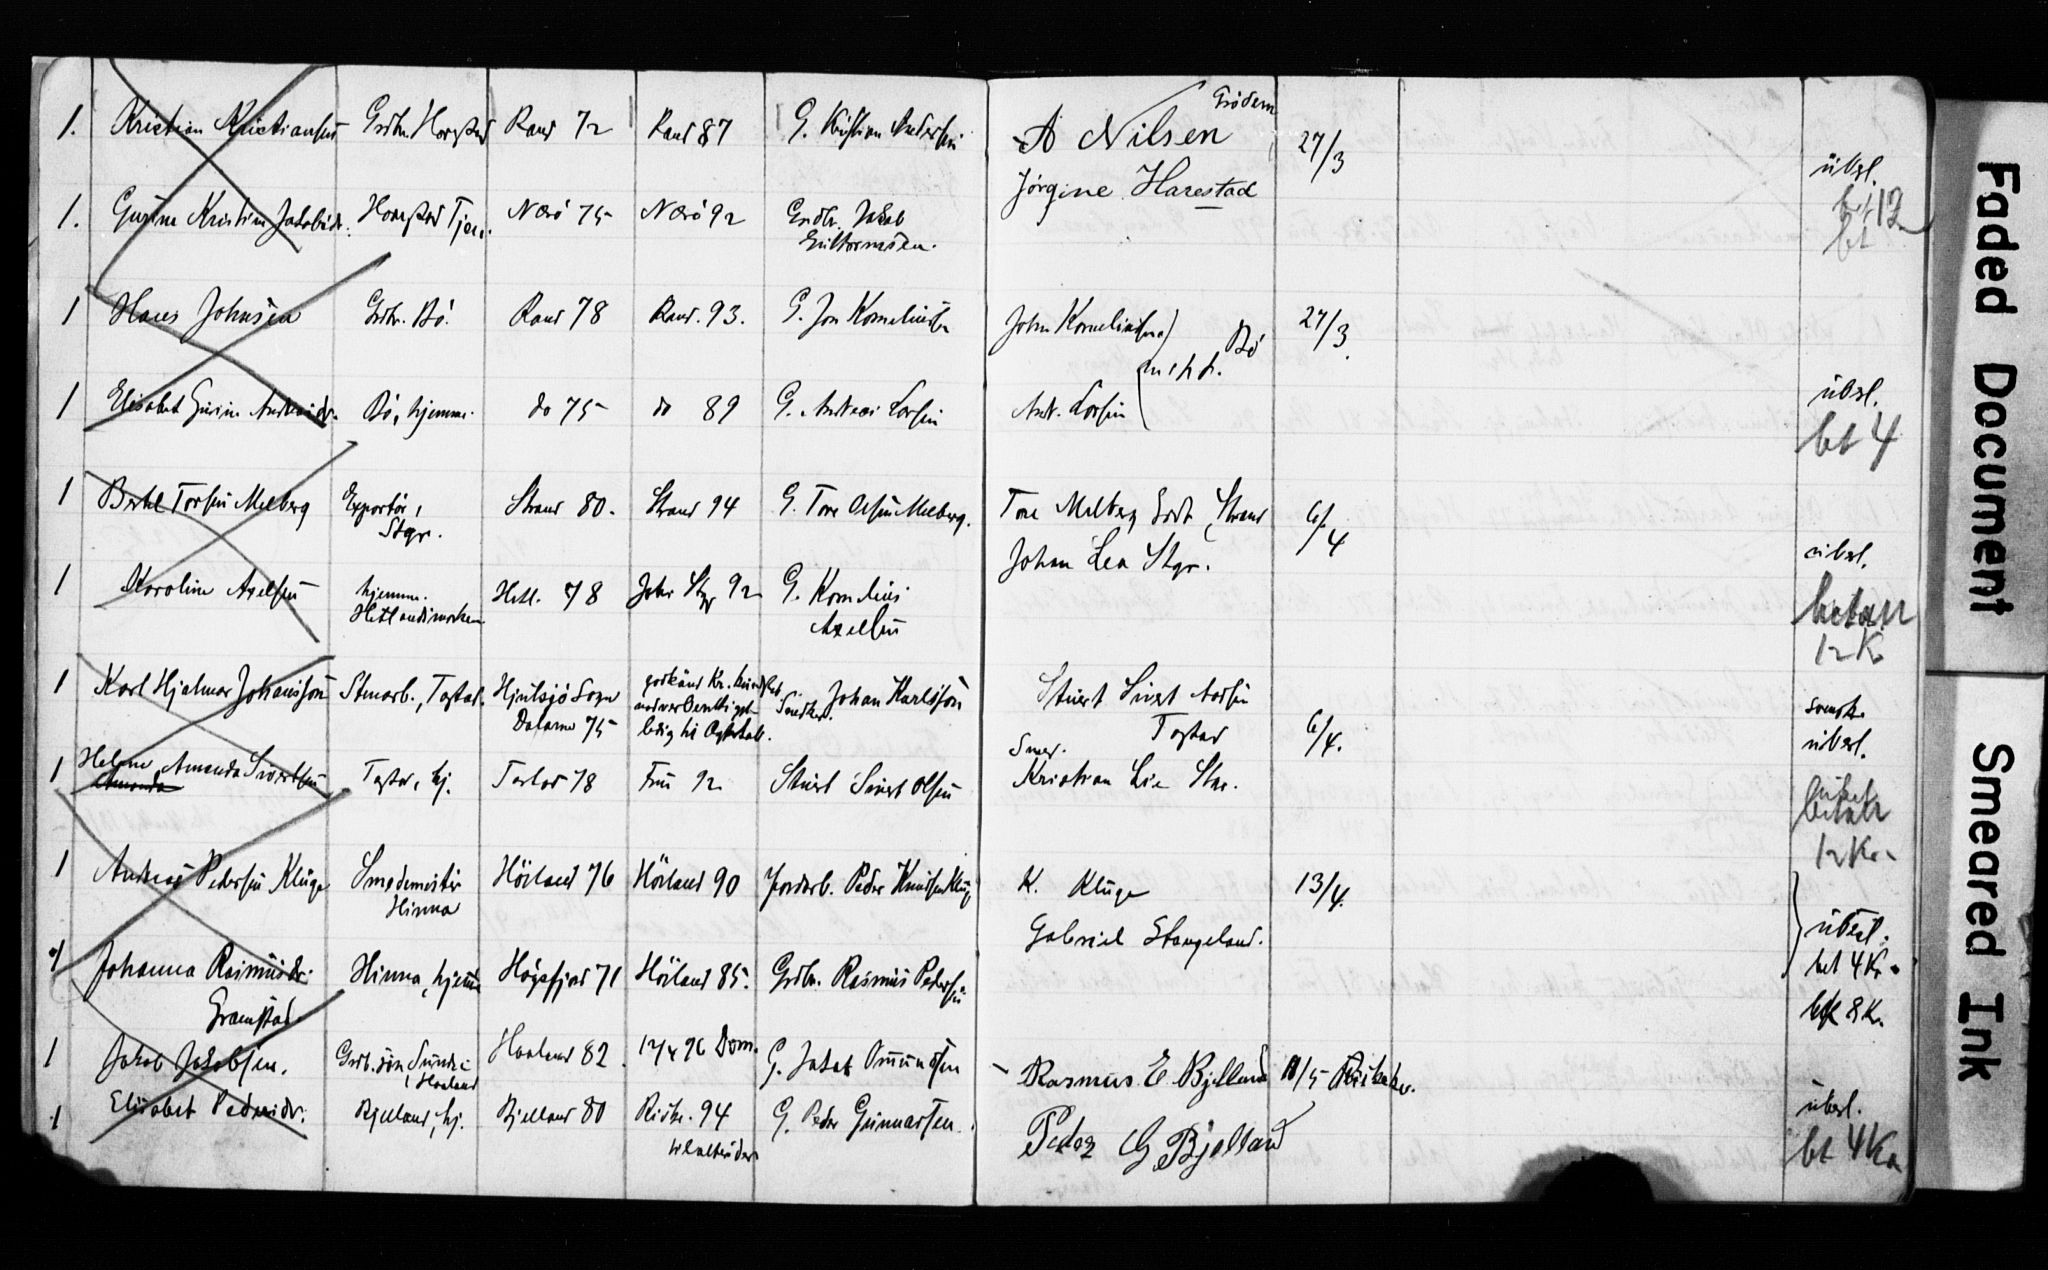 1. Kristian Kristiansen Grdbr. Rand 72 Rand 87 G. Kristian Andersen A Nilsen Grødem 27/3
Jørgine Harestad übsl.
1. Gurine Kristine Jakobsdr. Tjen. Nærø 75 Nærø 92 Grdbr. Jakob Guttormsen. bt 12
bt
1 Hans Johnsen Grdbr. Bø. Rand 78 Rand. 93. G. Jon Korneliussen John Korneliussen Bø 27/3
1 Elisabet Gurine Andreasdr. Bø, hjemme. do 75 do 89 G. Andreas Larsen And. Larsen übsl.
bt 4
1 Bertel Torsen Melberg Exportør, Stgr. Strand 80. Strand 94 G. Tore Olsen Melberg. Tore Melberg Strand 6/4
Johan Lea Stgr. übsl.
1 Karoline Axelsen hjemme. Hetlandsmarken Hetl. 78 Joh. Stgr 92 G. Kornelius Axelsen betalt
12 Kr
1 Karl Hjalmar Johansson Stenarb., Tastad. Sogn
Dalarne 75 Johan Karlsson Stuert Sivert
Tastad 6/4. svensk.
übsl.
1 Helene Amanda Sivertsen
Amanda Tastad, hj. Tastad 78 Fru 92 Stuert Sivert Olsen Smed.
Kristian Lie Star.
betalt
12 Kr.
1 Andreas Pedersen Kluge Smedemester
Hinna Höiland 76 Höiland 90 Jordarb. Peder Knudsen Kluge K. Kluge 13/4.
Gabriel Stangeland. übsl.
1 Johanna Rasmusdr.
Gramstad. Hinna, hjemme Høgsfjord 71 Höiland 85. Grdbr. Rasmus Pedersen bet 4 Kr.
bet 8 Kr.
1 Jakob Jakobsen. Grdb. søn
Haaland Haaland 82. 12/4 96 Dom. G. Jakob Omundsen Rasmus E Bjelland 11/5
1 Elisabet Pedersdr. Bjelland, hj. Bjelland 80 Risk. 94 G. Peder Gunnarsen. Peder G Bjelland übsl.
bt 4 Kr
Faded Document
Smeared Ink